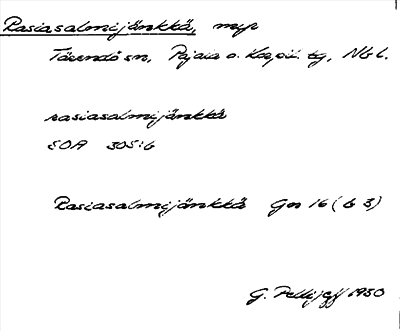 Rasiasalmijänkkä, myr
Tärendö sn, Pajala o. Korpil. tg, Nb l.
rasiasalmijänkkä
EOA 305:6
Rasiasalmijänkkä Gm 16 (b 3)
G. Pellijeff 1950